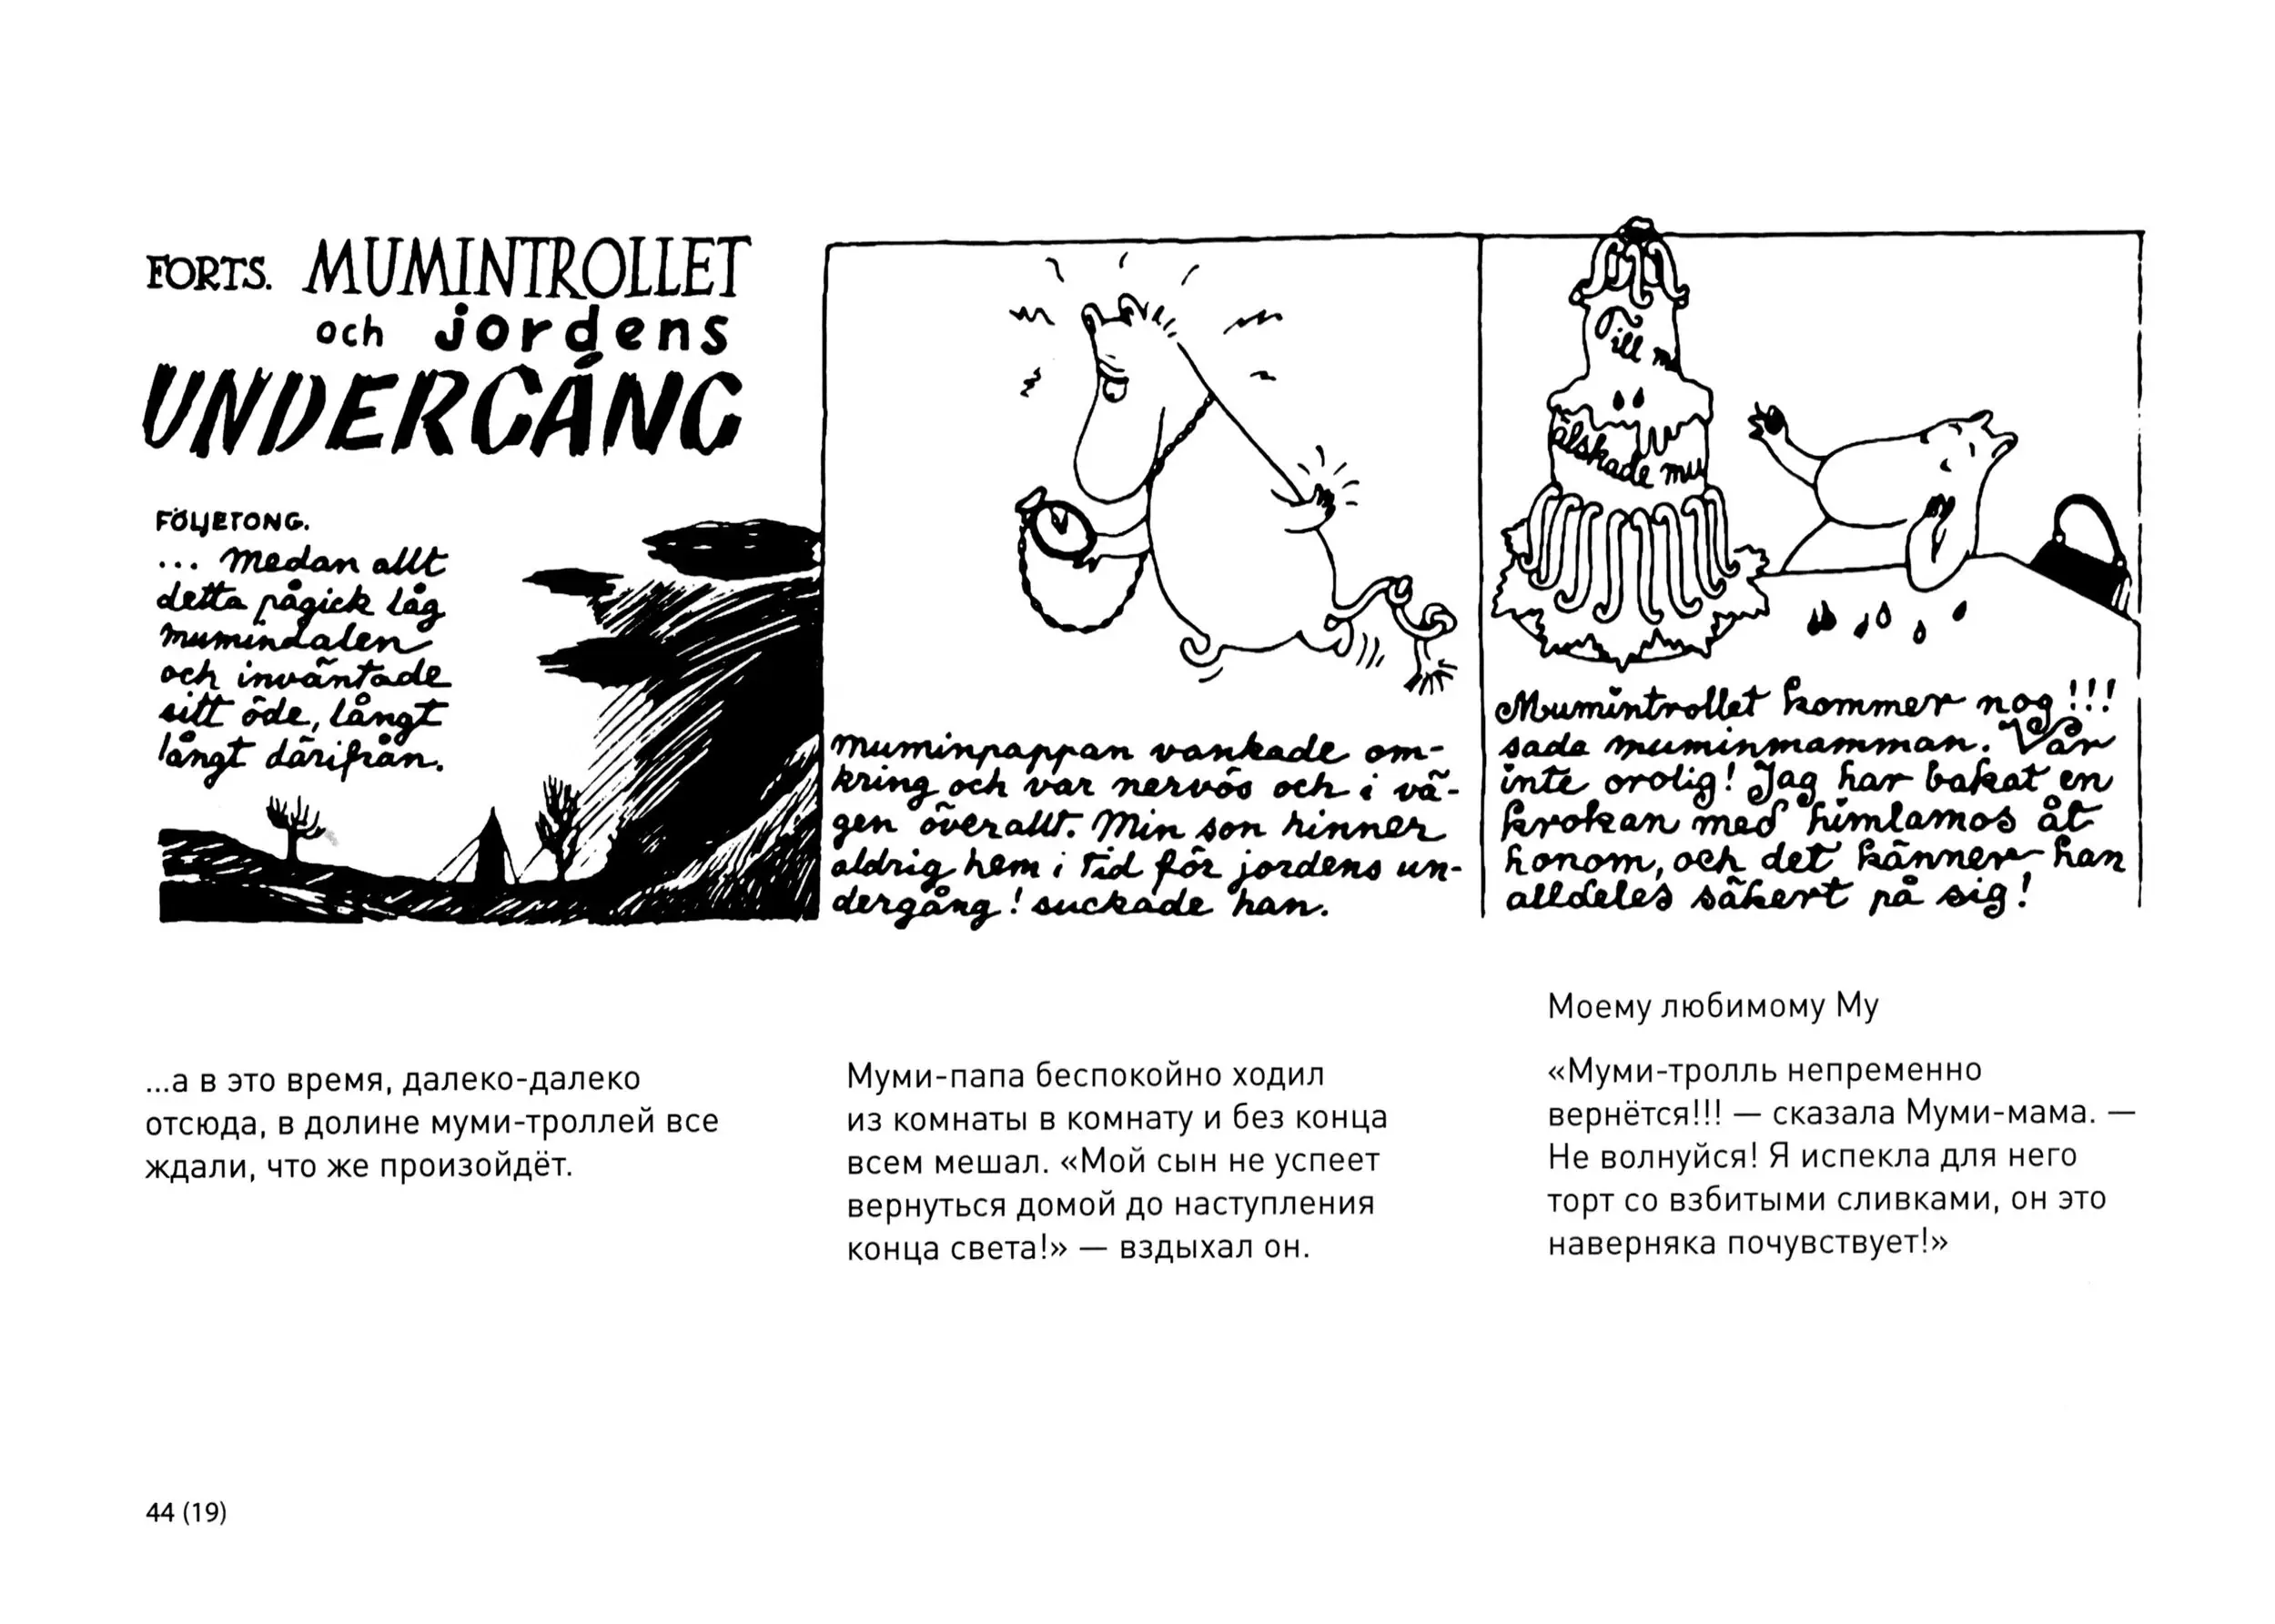 FORTS. MUMINTROLLET
och jordens
UNDERGÅNG
FÖLJETONG.
... medan allt
detta pågick låg
mumindalen
och inväntade
sitt öde, långt
långt därifrån.
muminpappan vankade om-
kring och var nervös och i vä-
gen överallt. Min son hinner
aldrig hem i tid för jordens un-
dergång! suckade han.
Till m
älskade mu
Mumintrollet kommer nog!!!
sada muminmamman. Var
inte orolig! Jag har bakat en
krokan med himlamos åt
honom, och det känner han
alldeles säkert på sig!
...а в это время, далеко-далеко
отсюда, в долине муми-троллей все
ждали, что же произойдёт.
Муми-папа беспокойно ходил
из комнаты в комнату и без конца
всем мешал. «Мой сын не успеет
вернуться домой до наступления
конца света!» — вздыхал он.
Моему любимому Му
«Муми-тролль непременно
вернётся!!! — сказала Муми-мама. —
Не волнуйся! Я испекла для него
торт со взбитыми сливками, он это
наверняка почувствует!»
44 (19)